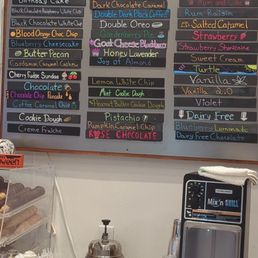 Birthday Cake
Black Raspberry White Chip
Black White Chip
Blood Orange Choc Chip
Blueberry Cheesecake
Butter Pecan
Cardamom Caramel Cashew
Cherry Fudge Sundae
Chocolate
Chocolate Chip
Coffee Caramel Chip
Cookie Dough
Creme Fraiche
Dark Chocolate Caramel
Double Dark Black Coffee
Double Oreo
Goat Cheese
Honey Lavender
Joy of Almond
Lemon White Chip
Mint Cookie Dough
Peanut Butter Cookie Dough
Pistachio
Pumpkin Caramel Chip
Rose Chocolate
Rum Raisin
Salted Caramel
Strawberry
Strawberry Shortcake
Sweet Cream
Turtle
Vanilla
Vanilla 2.0
Violet
Dairy Free
Blueberry Lemonade
Dairy Free Chocolate
Mix'n